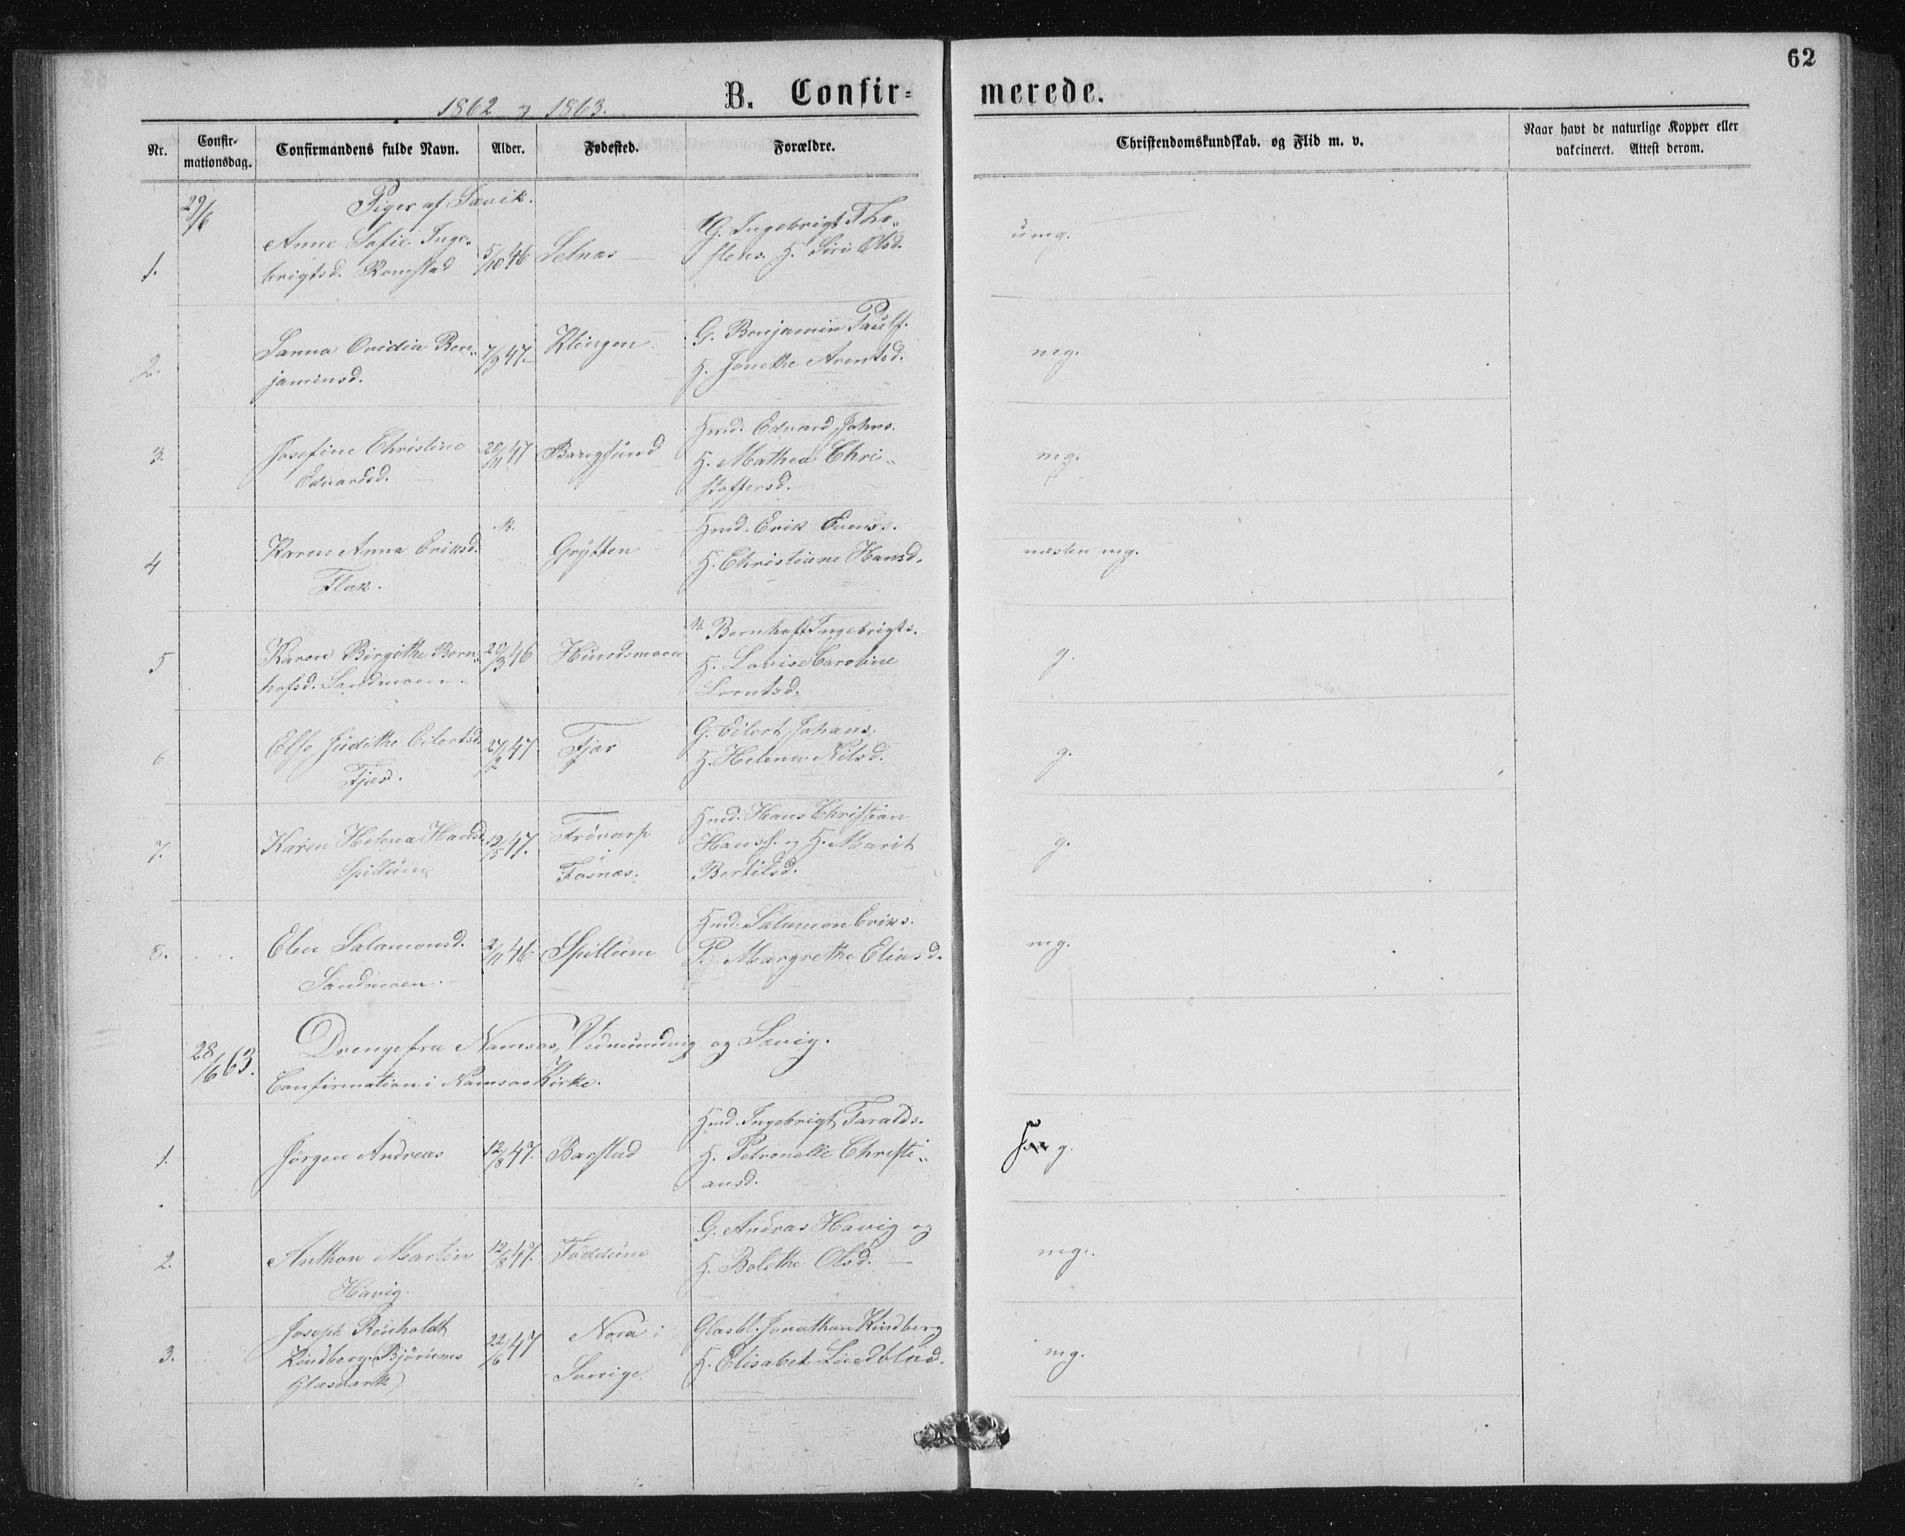 62
B. Confir-
merede.
1862 og 1863.
Nr.
Confir-
mationsdag.
Confirmandens fulde Navn.
Alder.
Fødested.
Forældre.
Christendomskundskab. og Flid m. v.
Naar havt de naturlige Kopper eller
vakcineret. Attest derom.
29/6
Piger af Sævik.
1.
Anne Sofie Inge-
brigtsd. Romstad
5/10 46
Selnæs
G. Ingebrigt Tho-
stens. H. Siri Olsd.
umg.
2.
Sanna Ovidia Ben-
jaminsd.
7/9 47.
Klingen
G. Benjamin Pauls.
H. Jonethe Arentsd.
mg.
3.
Josefine Christine
Edvardsd.
20/11 47
Bangsund
Hmd. Edvard Johns.
H. Mathea Chri-
stoffersd.
mg.
4
Karen Anna Eriksd.
Flak.
Grytten
Hmd. Erik Evens.
H. Christiane Hansd.
næsten mg.
5
Karen Birgithe Bern-
hofsd. Sandmoen.
20/3 46
Hundsmoen
Bernhoft Ingebrigts.
H. Lovise Caroline
Lorntsd.
g.
6
Else Judithe Eilertsd.
Fjær.
27/2 47.
Fjær
G. Eilert Johans.
H. Helena Nilsd.
g.
7.
Karen Helena Hansd.
Spillum
12/5 47.
Fosnæs.
Hmd. Hans Christian
Hans. og H. Marit
Bertilsd.
g.
8.
Elen Salamonsd.
Sandmoen.
2/11 46
Spillum
Hmd. Salamon Eriks.
P. Margrethe Eliasd.
mg.
28/6 63.
Drenge fra Namsos, Vemundvig og Sævig.
Confirmation i Namsos Kirke.
1.
Jørgen Andreas
12/8 47.
Barstad
Hmd. Ingebrigt Taralds.
H. Petronelle Christi-
ansd.
g.
2.
Anthon Martin
Havig.
12/8 47.
Føddune
G. Andreas Havig og
H. Bolethe Olsd.
mg.
3.
Joseph Reinholdt
Kindberg (Bjørumes
Glasværk)
22/6 47
Nora i
Sverige
Glasbl. Jonathan Kindberg
H. Elisabet Lindblad.
mg.